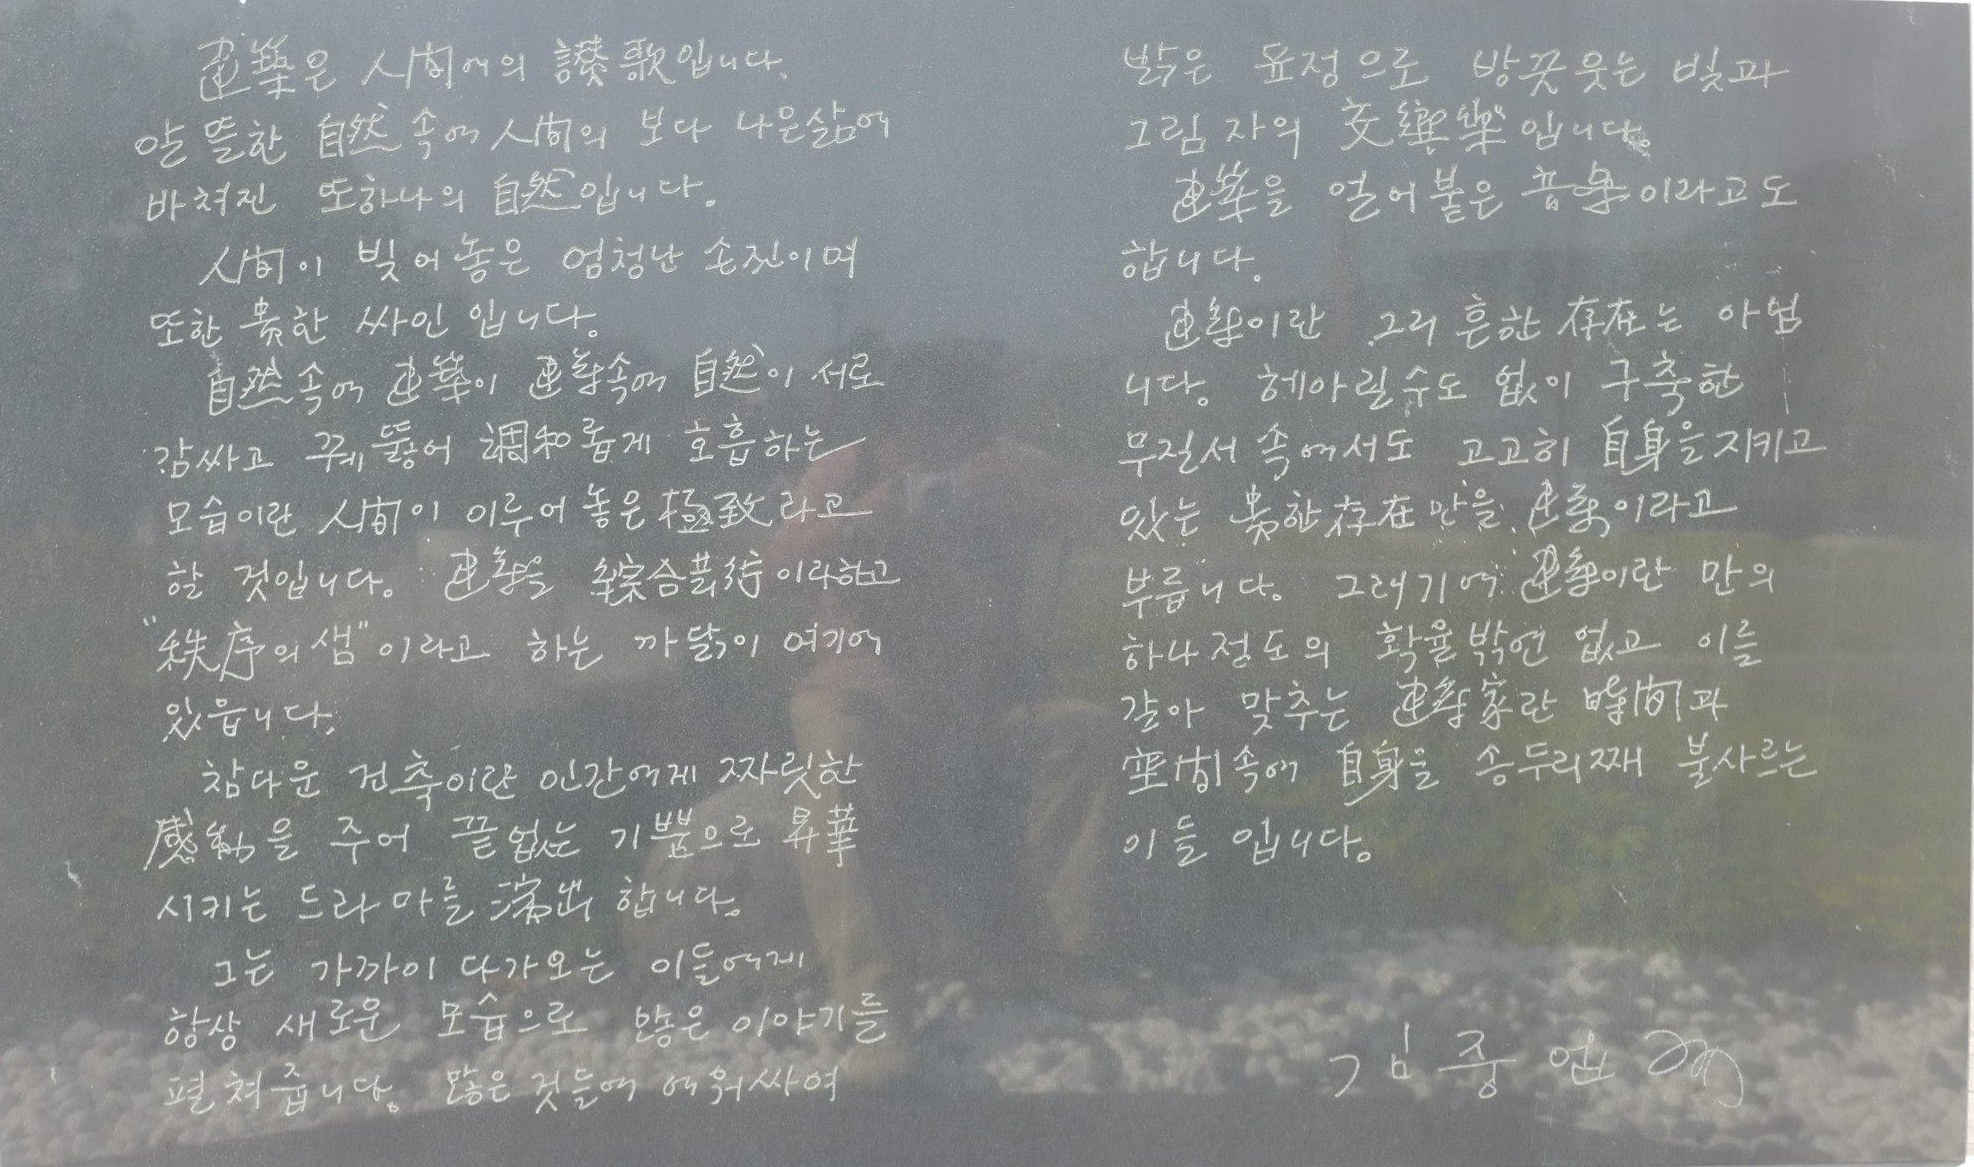 建築은 人間에의 讚歌입니다.
알뜰한 自然 속에 人間의 보다 나은삶에
바쳐진 또하나의 自然입니다.
人間이 빚어놓은 엄청난 손짓이며
또한 貴한 싸인 입니다.
自然속에 建築이 建築속에 自然이 서로
감싸고 꿰뚫어 調和롭게 호흡하는
모습이란 人間이 이루어 놓은 極致라고
할 것입니다. 建築을 綜合芸術이라하고
"秩序의 샘"이라고 하는 까닭이 여기에
있읍니다.
참다운 건축이란 인간에게 짜릿한
感動을 주어 끝없는 기쁨으로 昇華
시키는 드라마를 演出 합니다.
그는 가까이 다가오는 이들에게
항상 새로운 모습으로 많은 이야기를
펼쳐줍니다. 많은 것들에 에워싸여
밝은 표정으로 방끗웃는 빛과
그림자의 交響樂입니다.
建築을 얼어붙은 音楽이라고도
합니다.
建築이란 그리 흔한 存在는 아닙
니다. 헤아릴수도 없이 구축한
무질서 속에서도 고고히 自身을지키고
있는 貴한存在만을 建築이라고
부릅니다. 그러기에 建築이란 만의
하나정도의 확율밖엔 없고 이를
갈아 맞추는 建築家란 時間과
空間속에 自身을 송두리째 불사르는
이들 입니다.
김중업